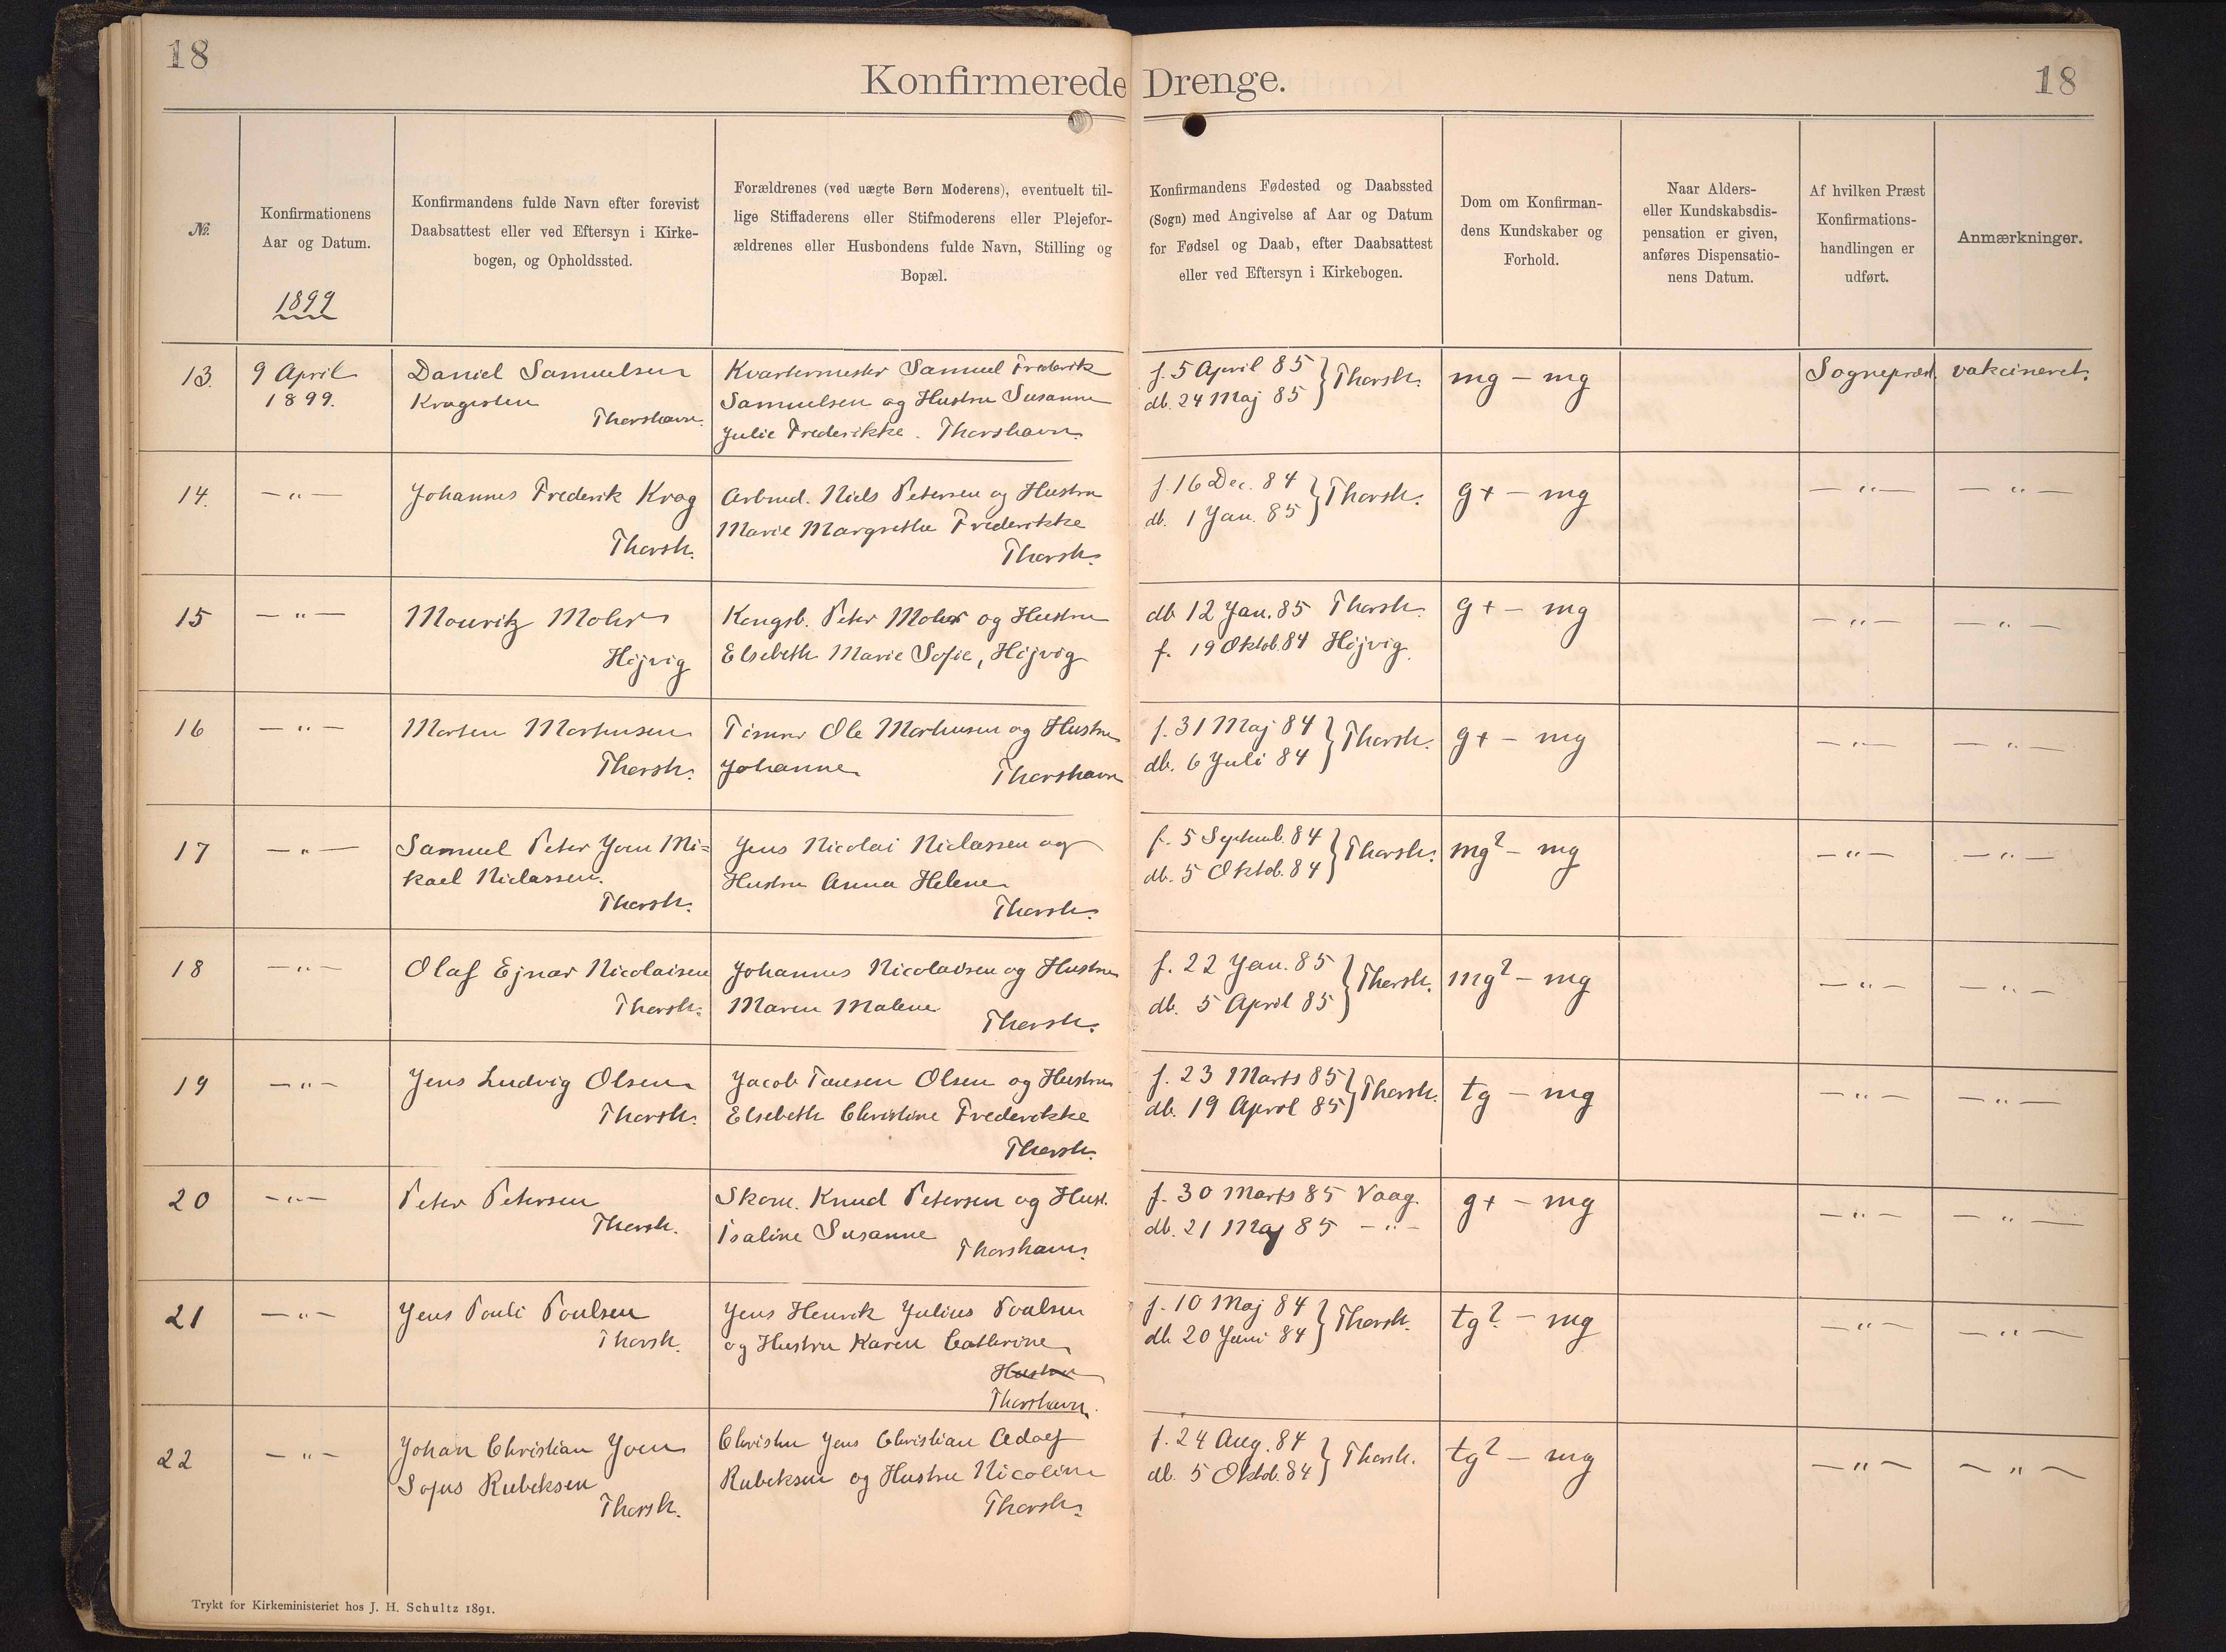 18
18
Konfirmerede Drenge.
№.
Konfirmationens
Aar og Datum.
1899
Konfirmandens fulde Navn efter forevist
Daabsattest eller ved Eftersyn i Kirke-
bogen, og Opholdssted.
Forældrenes (ved uægte Børn Moderens), eventuelt til-
lige Stiffaderens eller Stifmoderens eller Plejefor-
ældrenes eller Husbondens fulde Navn, Stilling og
Bopæl.
Konfirmandens Fødested og Daabssted
(Sogn) med Angivelse af Aar og Datum
for Fødsel og Daab, efter Daabsattest
eller ved Eftersyn i Kirkebogen.
Dom om Konfirman-
dens Kundskaber og
Forhold.
Naar Alders-
eller Kundskabsdis-
pensation er given,
anføres Dispensatio-
nens Datum.
Af hvilken Præst
Konfirmations-
handlingen er
udført.
Anmærkninger.
13.
9 April
1899.
Daniel Samuelsen
Kragesten
Thorshavn.
Kvartermester Samuel Frederik
Samuelsen og Hustru Susanne
Julie Frederikke. Thorshavn.
f. 5 April 85 } Thorsh.
db. 24 Maj 85
mg - mg
Sognepræst.
vakcineret.
14.
- " -
Johannes Frederik Krog
Thorsh.
Arbmd. Niels Petersen og Hustru
Marie Margrethe Frederikke
Thorsh.
f. 16 Dec. 84 } Thorsh.
db. 1 Jan. 85
g+ - mg
- " -
- " -
15
- " -
Mouritz Mohr
Højvig
Kongsb. Peter Mohr og Hustru
Elsebeth Marie Sofie, Højvig
db 12 Jan. 85 Thorsh.
f. 19 Oktob. 84 Højvig.
g+ - mg
- " -
- " -
16
- " -
Morten Mortensen
Thorsh.
Tømrer Ole Mortensen og Hustru
Johanne
Thorshavn
f. 31 Maj 84 } Thorsh.
db. 6 Juli 84
g+ - mg
- " -
- " -
17
- " -
Samuel Peter Joen Mi=
kael Niclassen.
Thorsh.
Jens Nicolai Niclassen og
Hustru Anna Helene
Thorsh.
f. 5 Septemb. 84 } Thorsh.
db. 5 Oktob. 84
mg? - mg
- " -
- " -
18
- " -
Olaf Ejnar Nicolaisen
Thorsh.
Johannes Nicolaisen og Hustru
Maren Malene
Thorsh.
f. 22 Jan. 85 } Thorsh.
db. 5 April 85
mg? - mg
- " -
- " -
19
- " -
Jens Ludvig Olsen
Thorsh.
Jacob Tausen Olsen og Hustru
Elsebeth Christine Frederikke
Thorsh.
f. 23 Marts 85 } Thorsh.
db. 19 April 85
tg - mg
- " -
- " -
20
- " -
Peter Petersen
Thorsh.
Skom. Knud Petersen og Hust.
Isaline Susanne
Thorshavn.
f. 30 Marts 85 Vaag.
db. 21 Maj 85 - " -
g+ - mg
- " -
- " -
21
- " -
Jens Pouli Poulsen
Thorsh.
Jens Henrik Julius Poulsen
og Hustru Karen Cathrine
Hustru
Thorshavn.
f. 10 Maj 84 } Thorsh.
db 20 Juni 84
tg? - mg
- " -
- " -
22
- " -
Johan Christian Joen
Sofus Rubeksen
Thorsh.
Jens Christian Adolf
Rubeksen og Hustru Nicoline
Thorsh.
f. 24 Aug. 84 } Thorsh.
db. 5 Oktob. 84
tg? - mg
- " -
- " -
Trykt for Kirkeministeriet hos J. H. Schultz 1891.